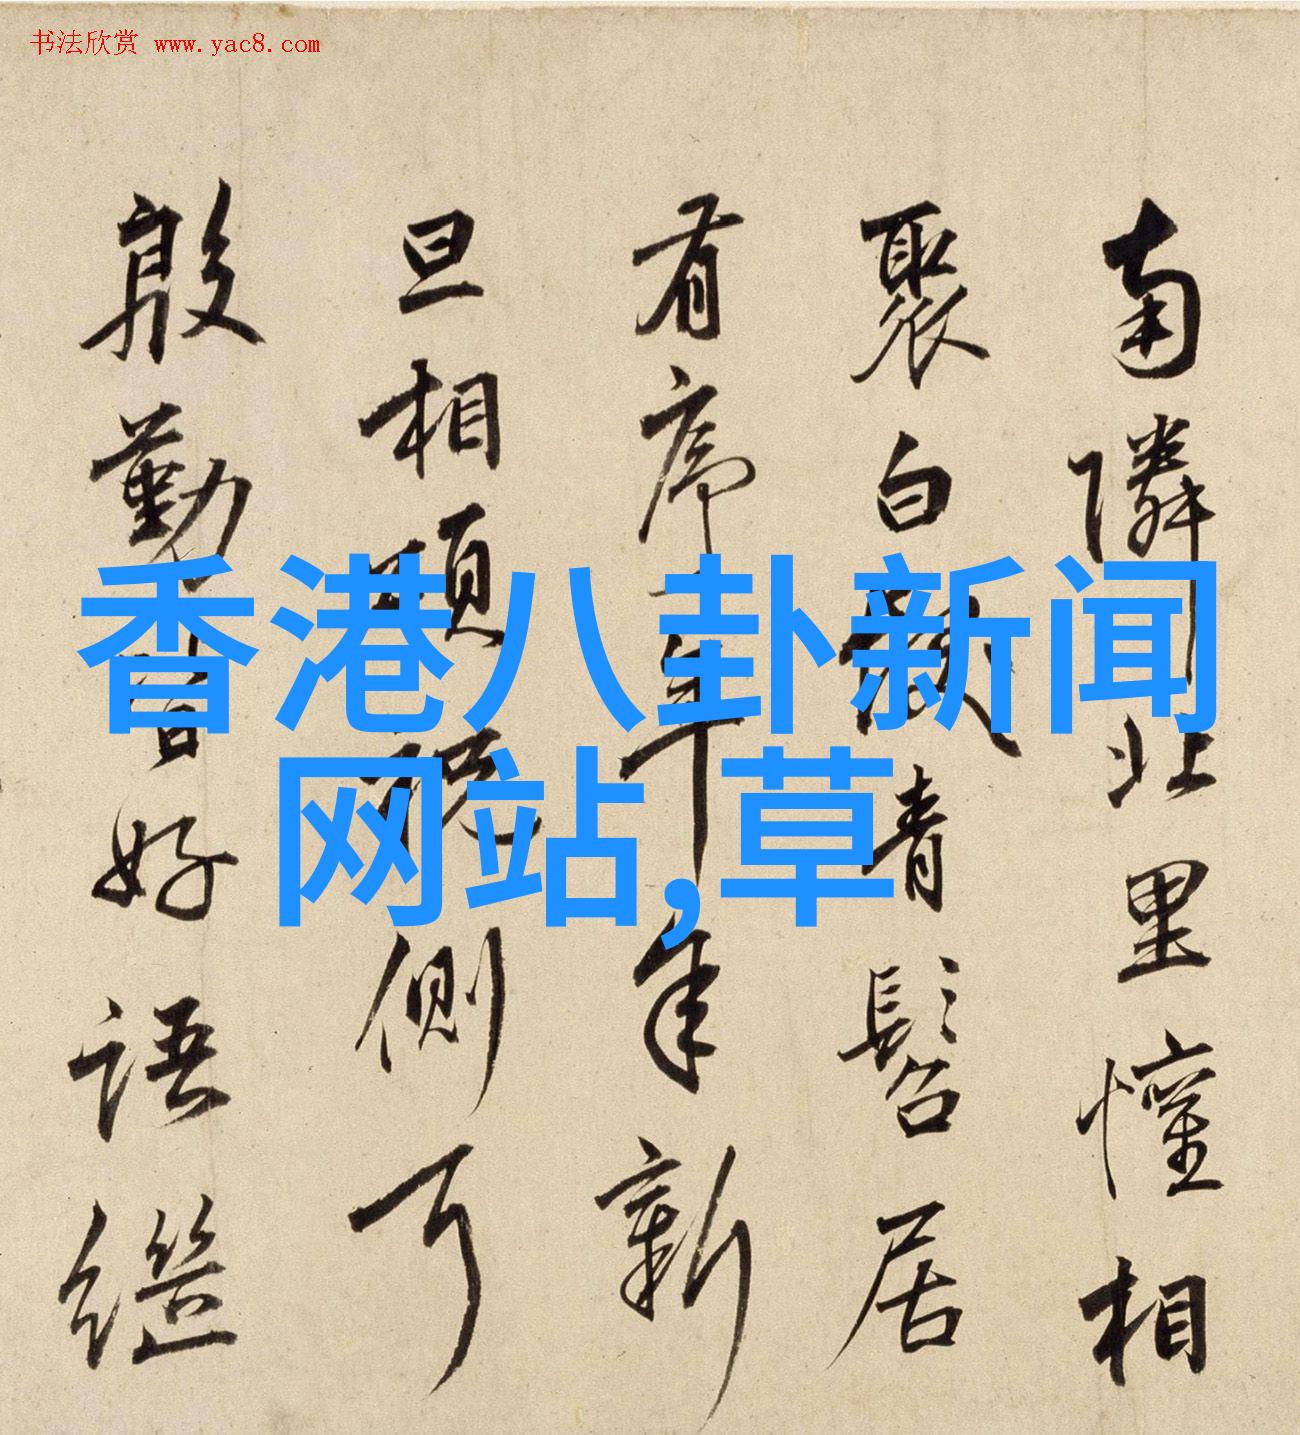 书法欣赏 www.yac8.com
香港八卦新闻
网站,草
南隣北里懽相
聚白髮青髫居
有序年年新
旦相顾语侧耳
殷勤皆好语继